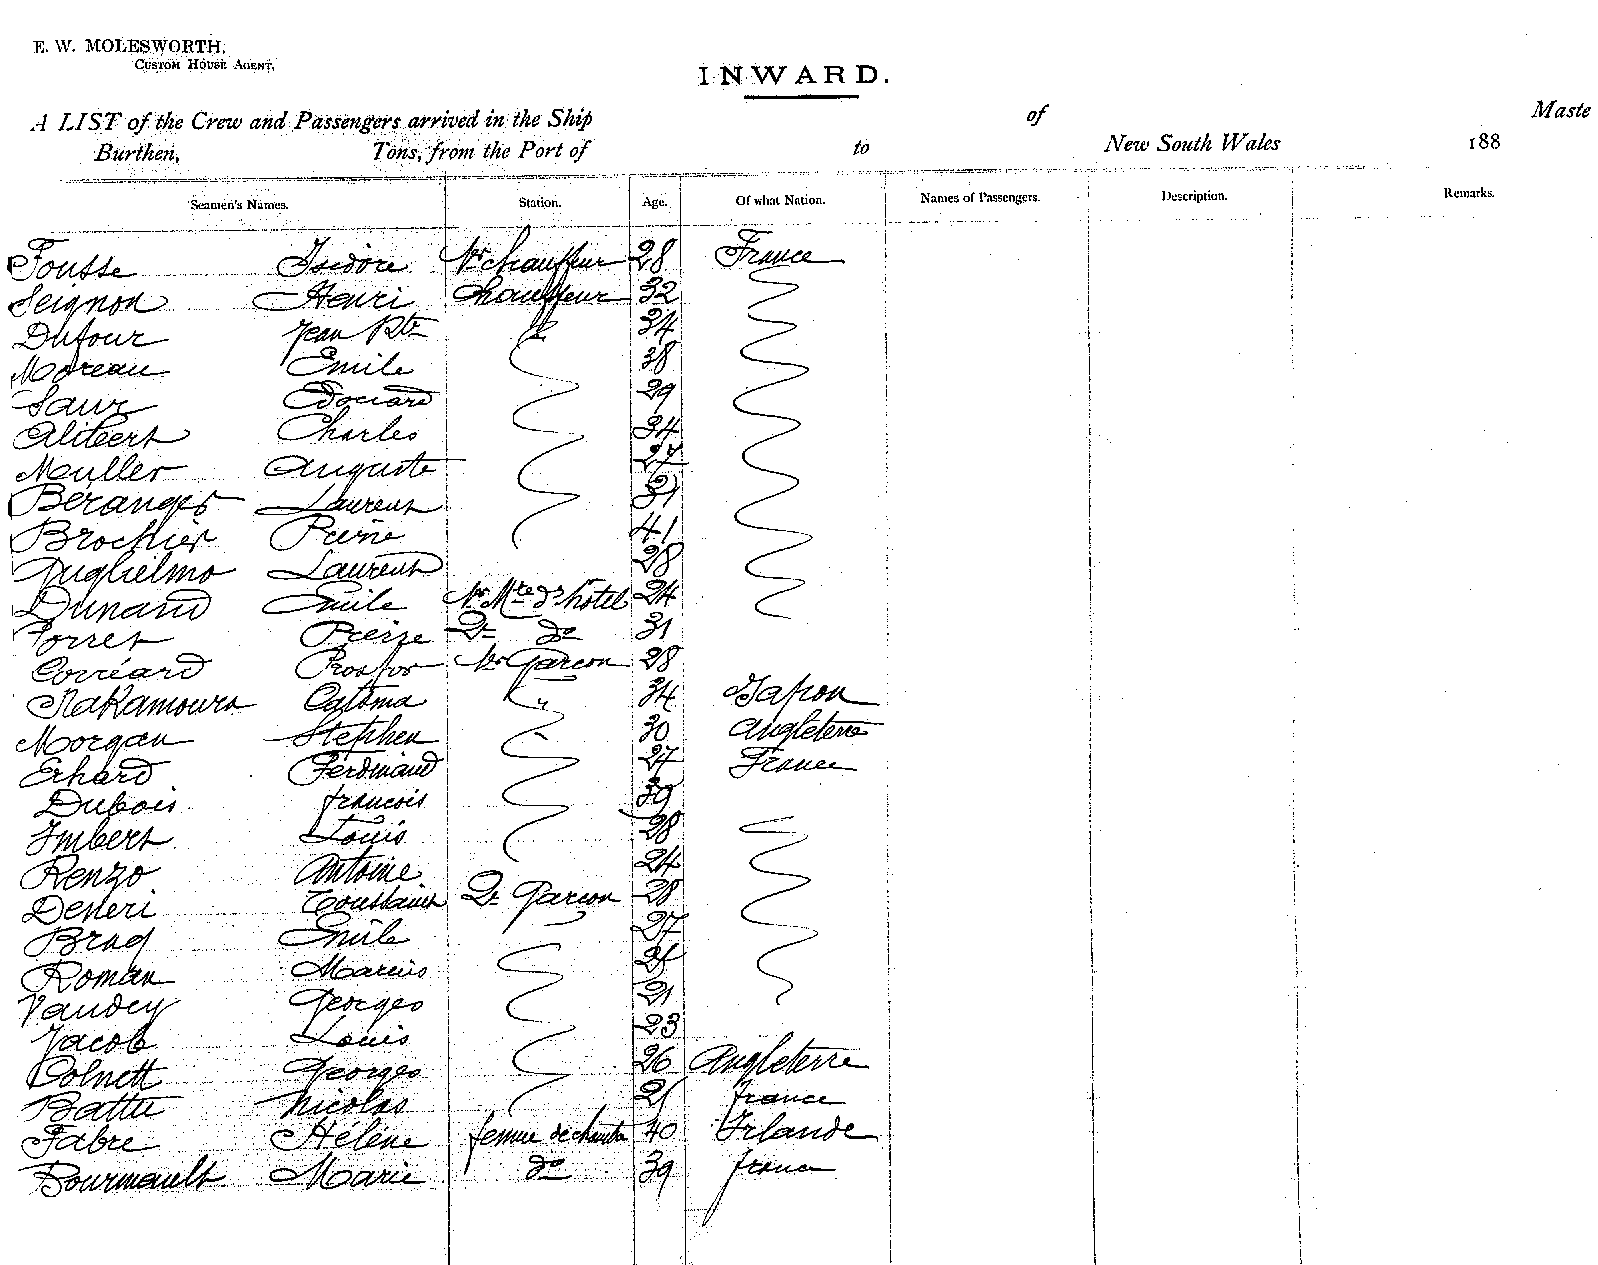 E. W. MOLESWORTH,
CUSTOM HOUSE AGENT.
INWARD.
A LIST of the Crew and Passengers arrived in the Ship of Maste
Burthen, Tons, from the Port of to New South Wales 188
Seamen's Names. Station. Age. Of what Nation. Names of Passengers. Description. Remarks.
Fousse Isidore chauffeur 28 France
Seignon Henri Chauffeur 32
Dufour Jean Bte 34
Moreau Emile 38
Saur Edouard 29
Alibert Charles 34
Muller Auguste 27
Beranger Laurent 31
Brochier Pierre 41
Guglielmo Laurent 28
Dunand Emile Mtre d'hôtel 24
Forret Pierre 2e do 31
Corréard Prosper Garcon 28
Nakamoura Catoma " 34 Japon
Morgan Stephen 30 Angleterre
Erhard Ferdinand 27 France
Dubois francois 39
Imbert Louis 28
Renzo Antoine 24
Deneri Toussaint 2e Garcon 28
Emile 27
Roman Marius
Vaudey Georges 21
Jacob Louis 23
Colnett Georges 26 Angleterre
Battu Nicolas france
Fabre Hélène femme de chambre 40 Irlande
Bourmault Marie do 39 france